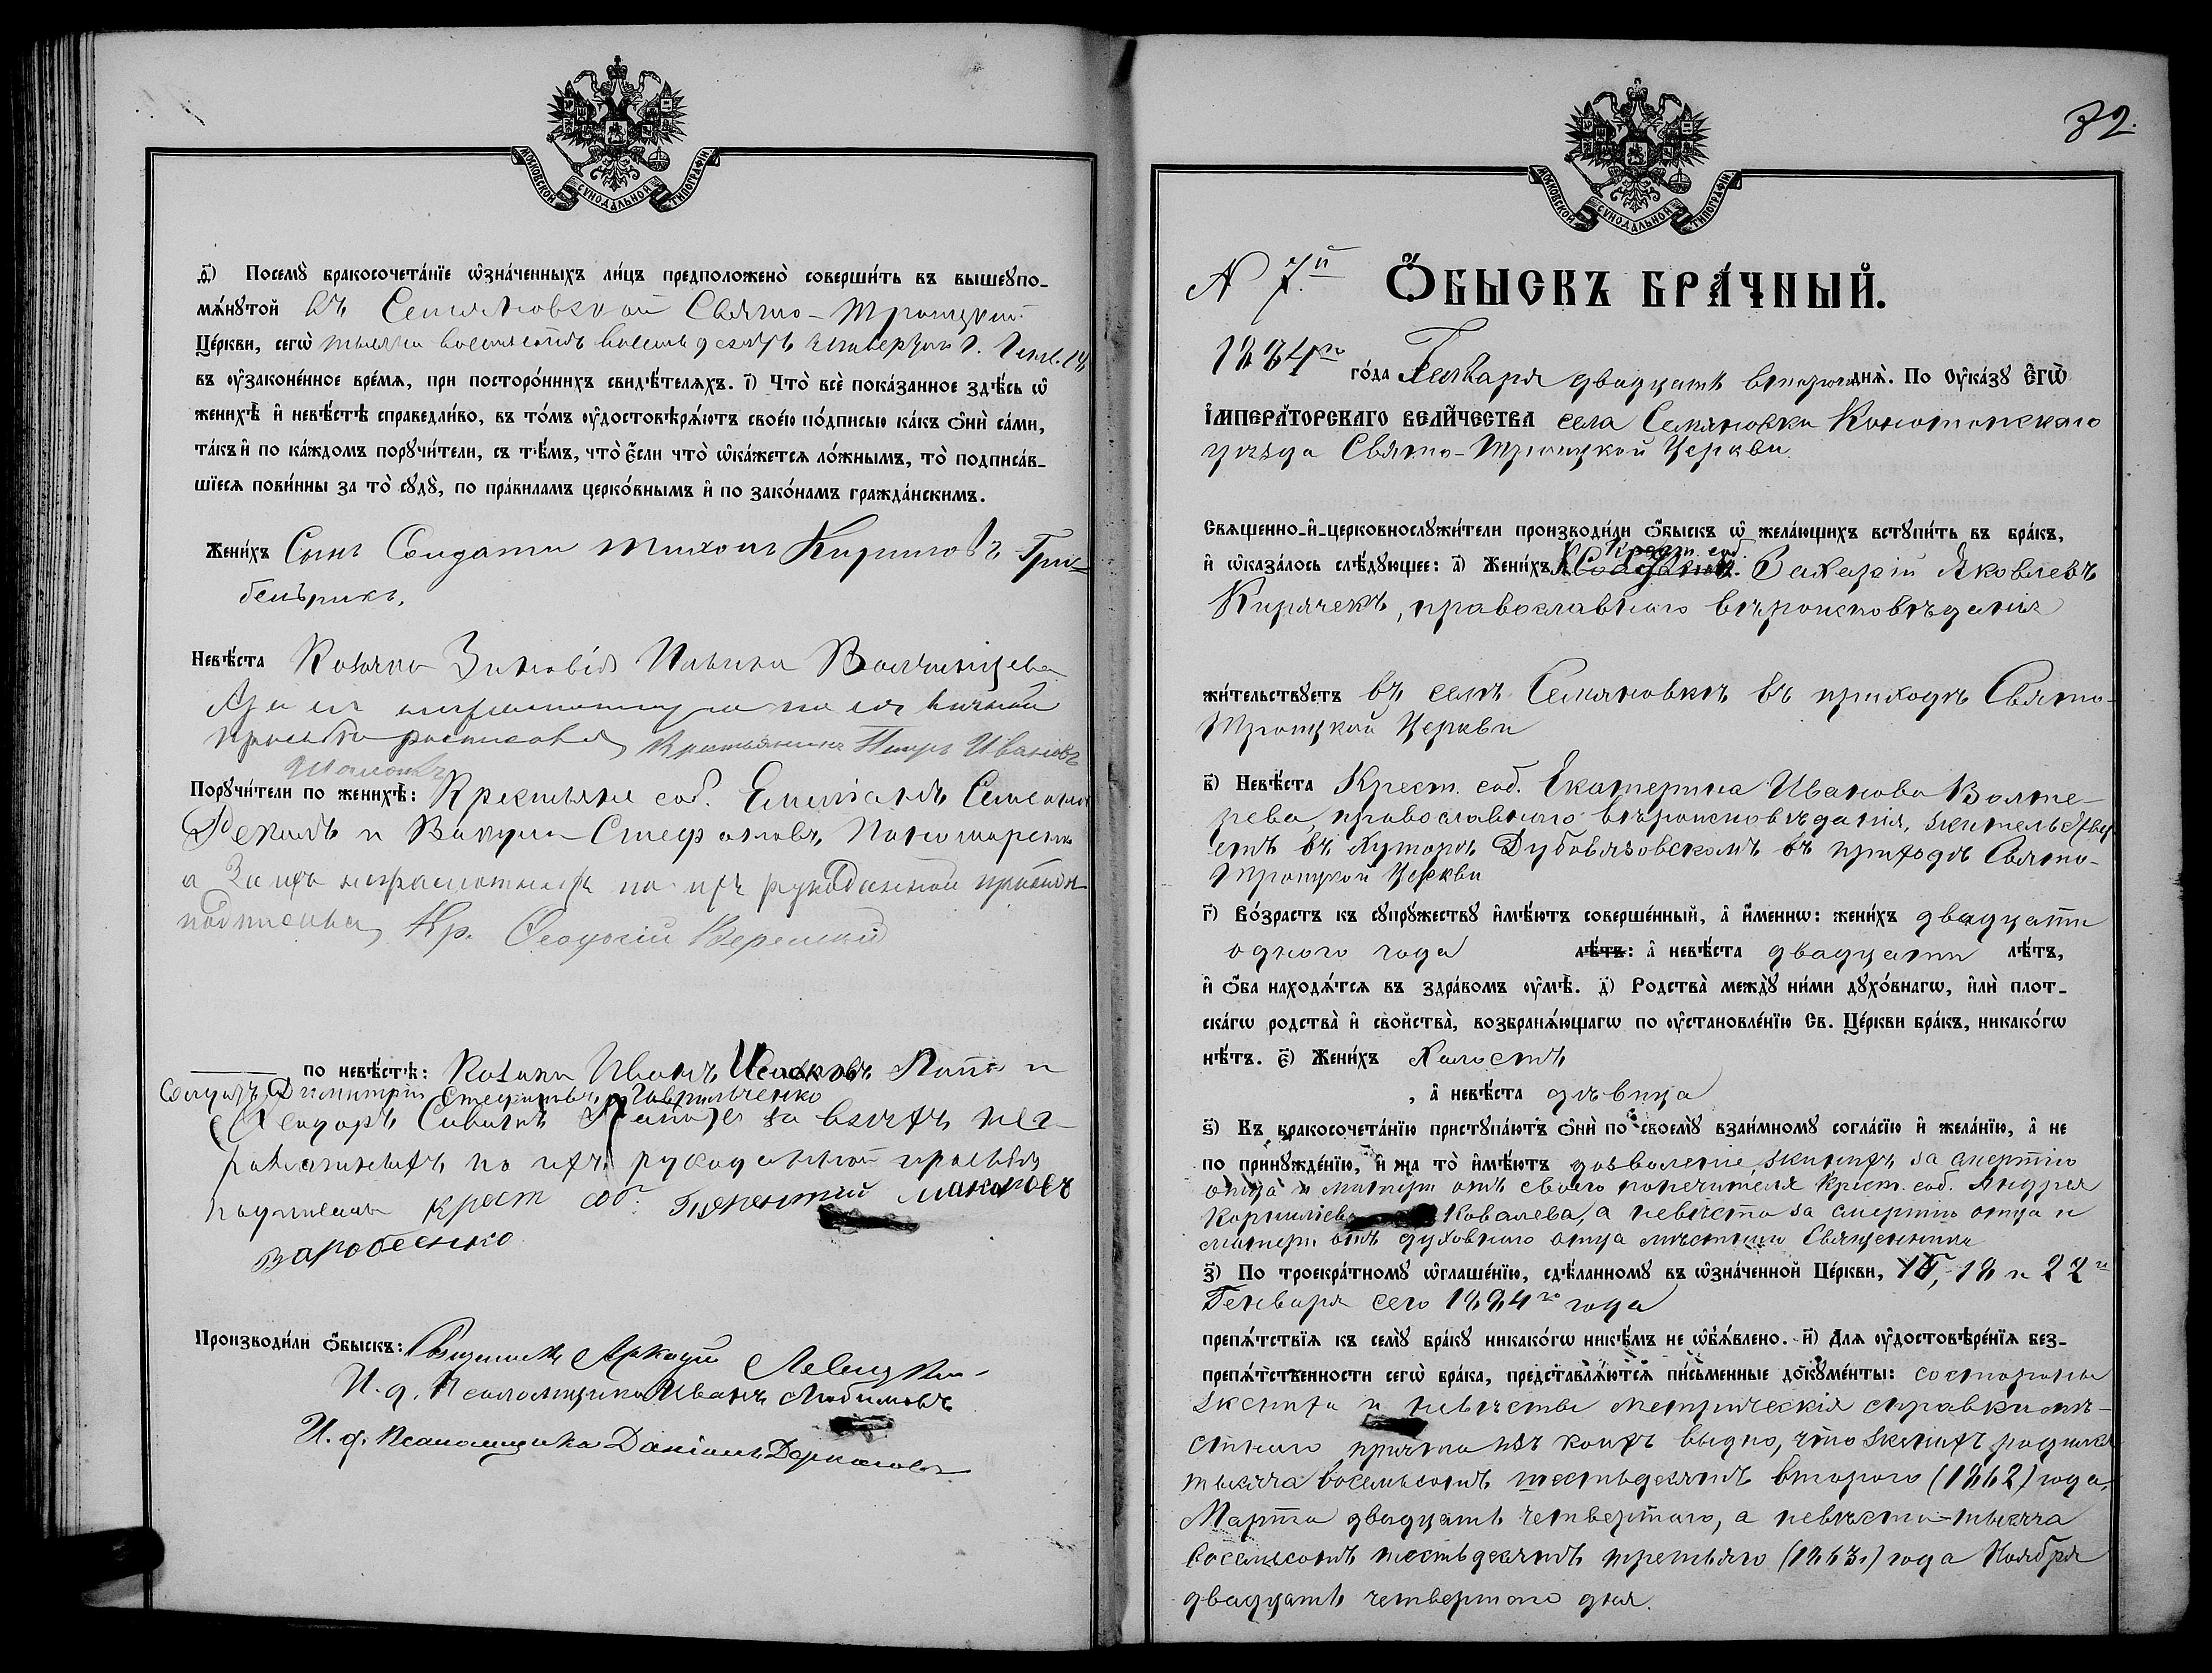 МОСКОВСКОЙ СѴНОДАЛЬНОЙ ТИПОГРАФІИ.
д҃і) Посемꙋ̀ бракосочета́нїе ѡ҆зна́ченныхъ ли́цъ предположено̀ соверши́ть въ вышеꙋпо-
мѧ́нꙋтой въ Семяновской Свято-Троицкой
Це́ркви, сегѡ̀ тысяча восемьсотъ восемьдесятъ четвертаго г. Генв.
въ ᲂу҆законе́нное вре́мѧ, при посторо́ннихъ свидѣ́телѧхъ. і҃) Что̀ всѐ пока́занное здѣ́сь ѡ҆
женихѣ̀ и҆ невѣ́стѣ справедли́во, въ то́мъ ᲂу҆достовѣрѧ́ютъ свое́ю по́дписью ка́къ ѻ҆нѝ са́ми,
та́къ и҆ по ка́ждомъ порꙋчи́тели, съ тѣ́мъ, что̀ є҆́сли что̀ ѡ҆ка́жетсѧ ло́жнымъ, то̀ подписа́в-
шїесѧ пови́нны за то̀ сꙋдꙋ̀, по пра́виламъ церко́внымъ и҆ по зако́намъ гражда́нскимъ.
Жени́хъ Сынъ Солдата Тихонъ Кириловъ Гри-
Невѣ́ста Козачка Зиновія Волчанцева
а за неграмотную по ея личной
просьбѣ росписовался Крестьянинъ Петръ Ивановъ
Порꙋчи́тели по женихѣ̀: Крестьяне соб. Емельянъ Семеновъ
и Вакула Стефановъ Пономаренко
а за ихъ неграмотныхъ по ихъ рукоданной прозьбѣ
подписался Кр. Феодосій
по невѣ́стѣ: Козаки Иванъ и
Солдатъ Димитрій Стефановъ Гаврильченко
Савинъ за всѣхъ нег-
рамотныхъ по ихъ рукоданной просьбѣ
подписался крест соб. Терентий Макаровъ
Варобеенко
Производи́ли ѻ҆́быскъ: Священникъ Аркадій Левицкій
И. д. Псаломщика Иванъ Любимовъ
И. д. Псаломщика Даніилъ
72.
МОСКОВСКОЙ СѴНОДАЛЬНОЙ ТИПОГРАФІИ.
№ 7.й Ѻ҆́БЫСКЪ БРА́ЧНЫЙ.
1884го го́да Генваря двадцать втораго днѧ̀. По Оу҆ка́зꙋ Є҆гѡ̀
І҆МПЕРА́ТОРСКАГО ВЕЛИ́ЧЕСТВА села Семяновки Конотопскаго
уѣзда Свято-Троицкой Церкви
Свѧщенно-и҆-церковнослꙋжи́тели производи́ли ѻ҆́быскъ ѡ҆ жела́ющихъ вступи́ть въ бра́къ,
Крест. соб.
и҆ ѡ҆каза́лось слѣ́дꙋющее: а҃) Жени́хъ Захарій Яковлевъ
Кирячекъ, православнаго вѣроисповѣданія
жи́тельствꙋетъ въ селѣ Семяновкѣ въ приходѣ Свято-
Троицкой Церкви
в҃) Невѣ́ста Крест. соб. Екатерина Иванова Волте-
рева, православнаго вѣроисповѣданія, жительству-
етъ въ Хуторѣ Дубовязовскомъ въ приходѣ Свято-
Троицкой Церкви
г҃) Во́зрастъ къ сꙋпрꙋ́жествꙋ и҆мѣ́ютъ соверше́нный, а҆ и҆́меннѡ: жени́хъ двадцати
одного года лѣ́тъ: а҆ невѣ́ста двадцати лѣ́тъ,
и҆ ѻ҆́ба нахо́дѧтсѧ въ здра́вомъ ᲂу҆мѣ̀. д҃) Родства̀ междꙋ̀ ни́ми дꙋхо́внагѡ, и҆лѝ плот-
ска́гѡ родства̀ и҆ сво́йства, возбранѧ́ющагѡ по ᲂу҆становле́нїю Св. Це́ркви бра́къ, никако́гѡ
нѣ́тъ. є҃) Жени́хъ Холостъ
, а҆ невѣ́ста дѣвица
ѕ҃) Къ бракосочета́нїю пристꙋпа́ютъ ѻ҆нѝ по своемꙋ̀ взаи́мномꙋ согла́сїю и҆ жела́нїю, а҆ не
по принꙋжде́нїю, и҆ на то̀ и҆мѣ́ютъ дозволеніе, женихъ за смертію
отца и матери отъ своего попечителя Крест. соб. Андрея
Корниліева Ковалева, а невѣста за смертію отца и
матери отъ духовнаго отца мѣстнаго Священника
з҃) По троекра́тномꙋ ѡ҆глаше́нїю, сдѣ́ланномꙋ въ ѡ҆зна́ченной Це́ркви, 15, 18 и 22го
Генваря сего 1884го года
препѧ́тствїѧ къ семꙋ̀ бра́кꙋ никако́гѡ никѣ́мъ не ѡ҆бъѧ́влено. и҃) Длѧ ᲂу҆достовѣре́нїѧ без-
препѧ́тственности сегѡ̀ бра́ка, представлѧ́ютсѧ пи́сьменные докꙋме́нты: состороны
жениха и невѣсты метрическія справки мѣ-
стнаго причта изъ коихъ видно, что женихъ родился
тысяча восемьсотъ шестьдесятъ втораго (1862) года,
Марта двадцать четвертаго, а невѣста-тысяча
восемьсотъ шестьдесятъ третьяго (1863) года Ноября
двадцать четвертаго дня.